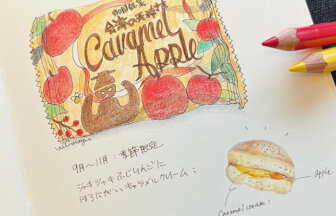 会津の天神さま
Caramel
Apple
9月〜11月：季節限定
シャキシャキふじりんごに
ほろにがいキャラメルクリーム：
Apple
Caramel cream